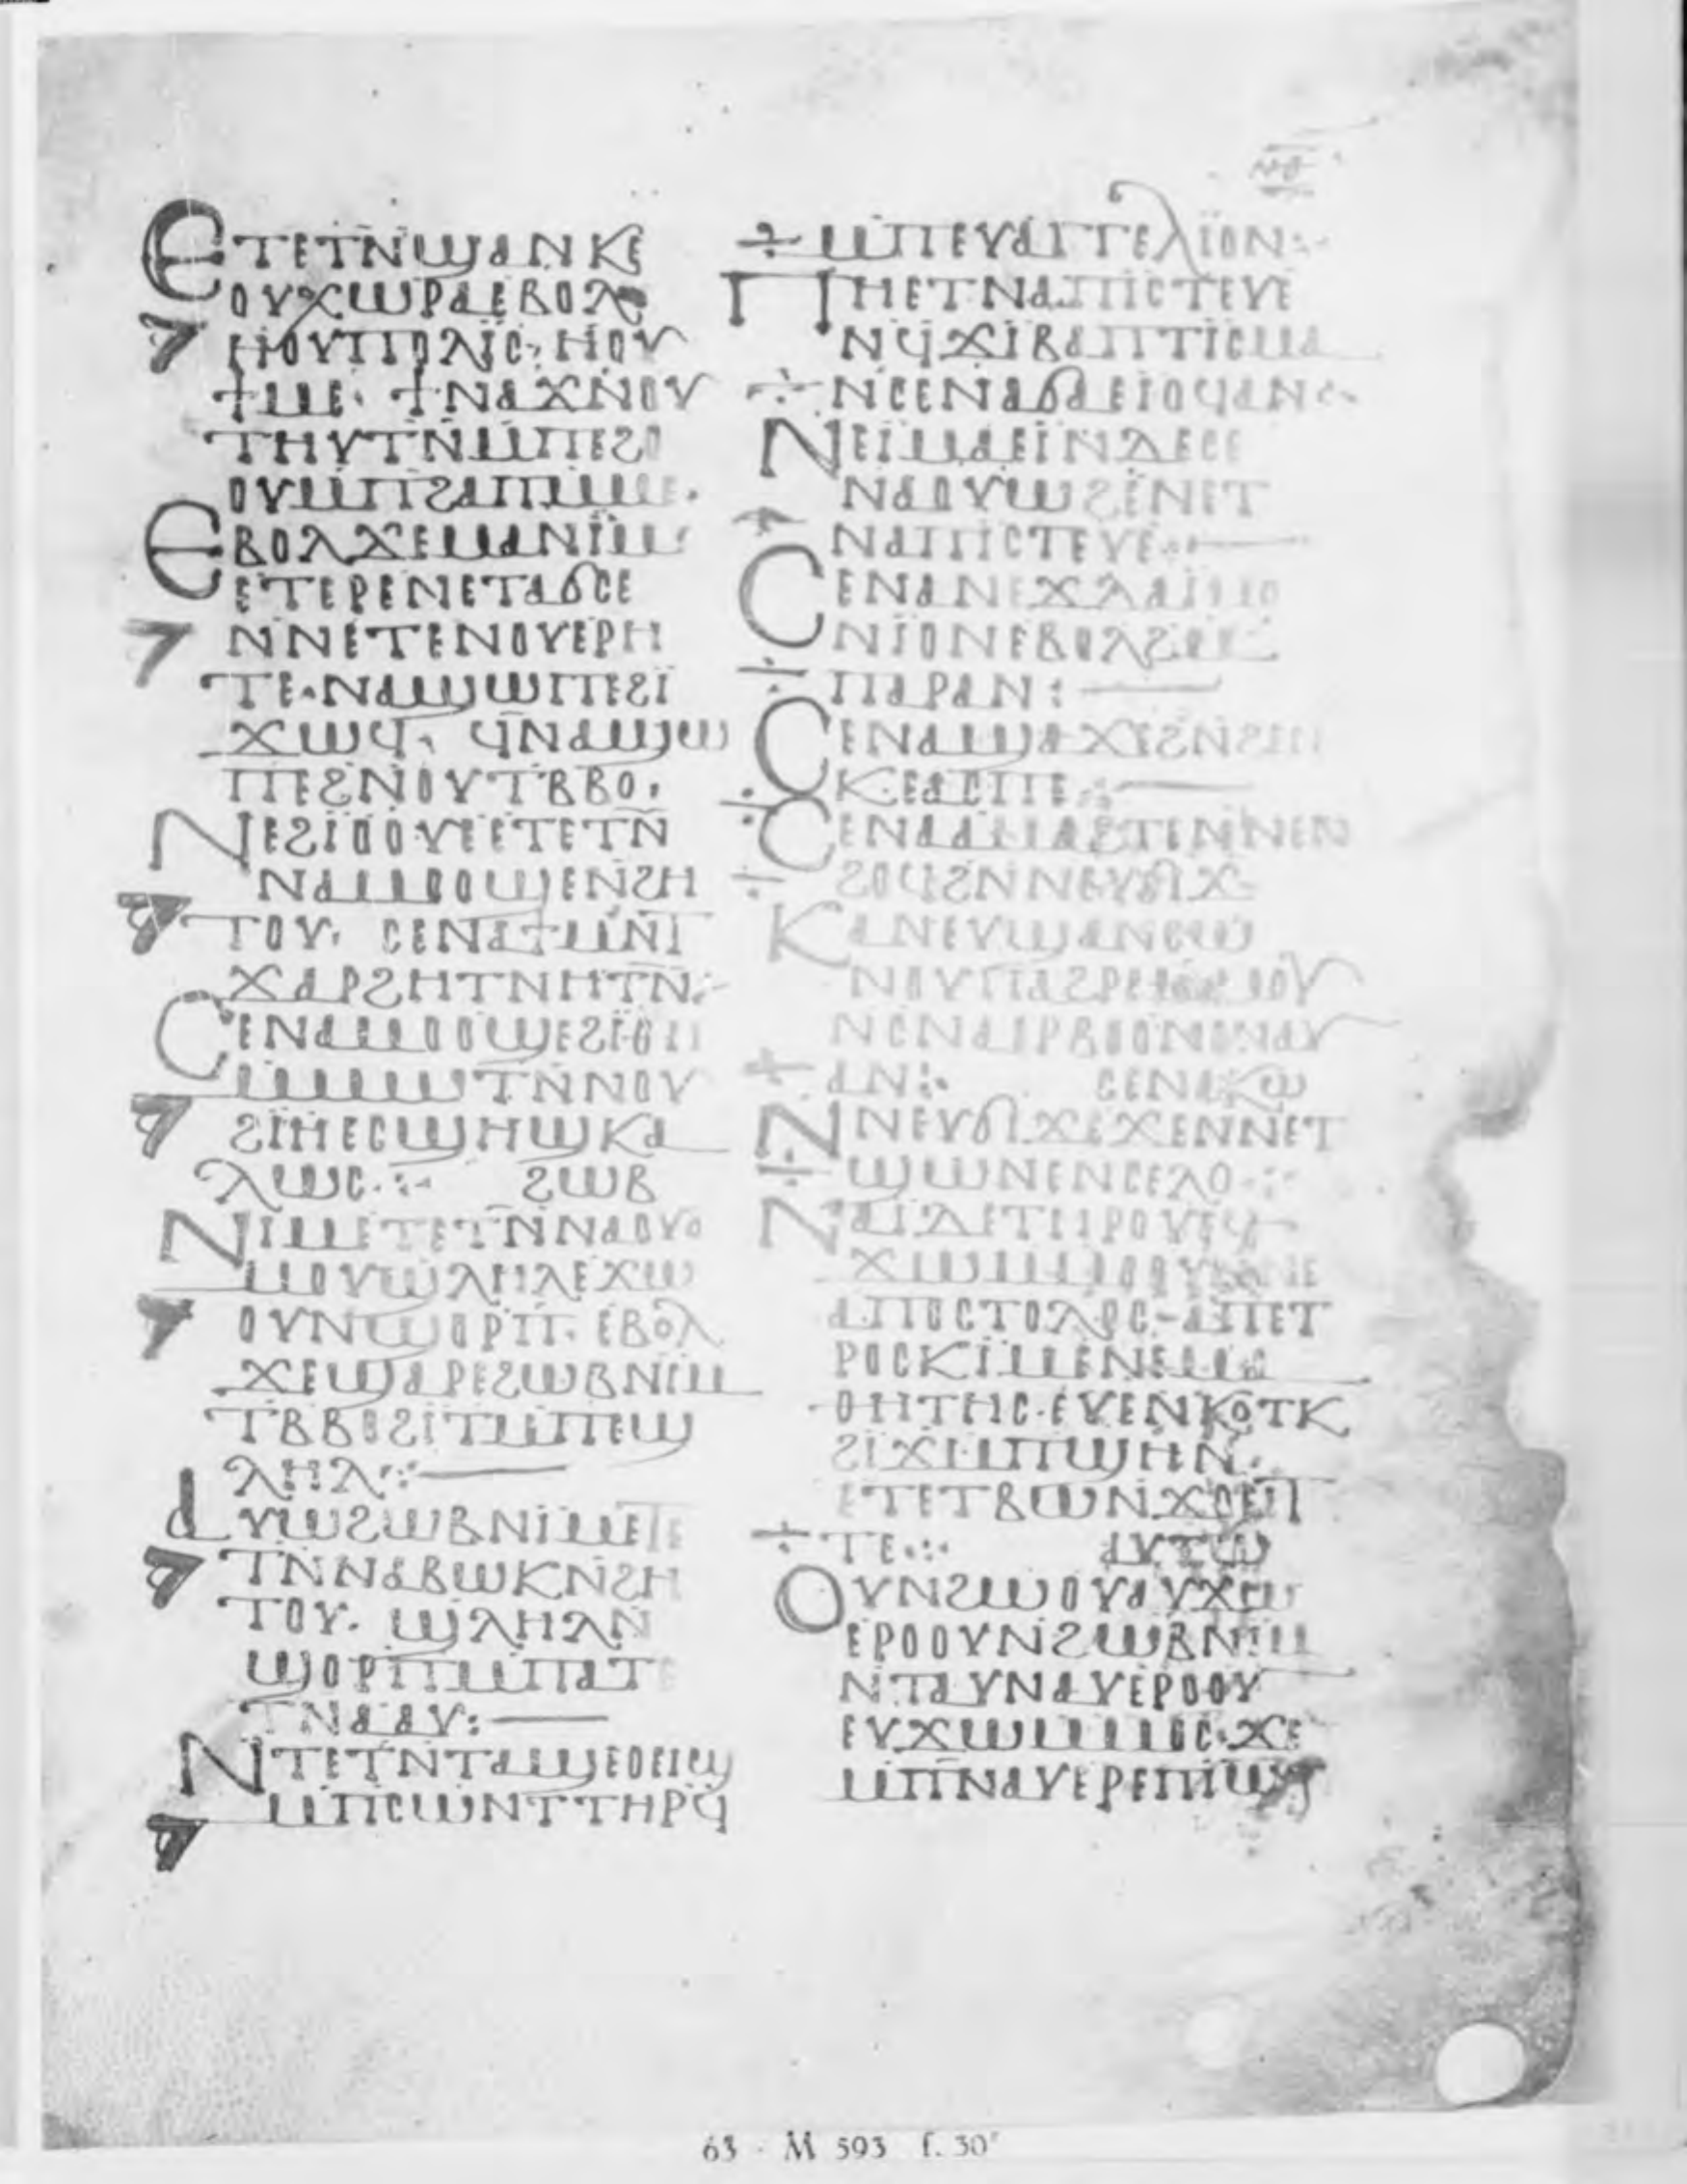 ⲛⲑ
ⲉⲧⲉⲧⲛ̄ϣⲁⲛⲕⲉ
ⲟⲩⲭⲱⲣⲁⲉⲃⲟⲗ
ⲏⲟⲩⲡⲟⲗⲓⲥ· ⲏⲟⲩ
ϯⲙⲉ· ϯⲛⲁϫⲛⲟⲩ
ⲧⲏⲩⲧⲛ̄ⲙ̄ⲡⲉϩⲟ
ⲟⲩⲙ̄ⲡϩⲁⲡⲙ̄ⲙⲉ·
ⲉⲃⲟⲗϫⲉⲙⲁⲛⲓⲙ
ⲉⲧⲉⲣⲉⲛⲉⲧⲁϭⲥⲉ
ⲛⲛⲉⲧⲉⲛⲟⲩⲉⲣⲏ
ⲧⲉ·ⲛⲁϣϣⲱⲡⲉϩⲓ
ϫⲱϥ· ϥⲛⲁϣⲱ
ⲡⲉϩⲛⲟⲩⲧⲃⲃⲟ·
ⲛⲉϩⲓⲟⲟⲩⲉⲉⲧⲉⲧⲛ̄
ⲛⲁⲙⲟⲟϣⲉⲛ̄ϩⲏ
ⲧⲟⲩ· ⲥⲉⲛⲁϯⲙ̄ⲛ̄ⲧ
ϫⲁⲣϩⲏⲧⲛⲏⲧⲛ̄·
ⲥⲉⲛⲁⲙⲟⲟϣⲉϩⲓⲑⲏ
ⲙ̄ⲙⲱⲧⲛ̄ⲛⲟⲩ
ϩⲓⲏⲉⲥϣⲏϣⲕⲁ
ⲗⲱⲥ·:· ϩⲱⲃ
ⲛⲓⲙⲉⲧⲉⲧⲛ̄ⲛⲁⲟⲩⲟ
ⲙⲟⲩϣⲗⲏⲗⲉϫⲱ
ⲟⲩⲛϣⲟⲣⲡ· ⲉⲃⲟⲗ
ϫⲉϣⲁⲣⲉϩⲱⲃⲛⲓⲙ
ⲧⲃⲃⲟϩⲓⲧⲙ̄ⲡⲉϣ
ⲗⲏⲗ·:·
ⲁⲩⲱϩⲱⲃⲛⲓⲙⲉⲧⲉ
ⲧⲛ̄ⲛⲁⲃⲱⲕⲛ̄ϩⲏ
ⲧⲟⲩ· ϣⲗⲏⲗⲛ̄
ϣⲟⲣⲡⲙ̄ⲡⲁⲧⲉ
ⲧⲛⲁⲁⲩ:
ⲛⲧⲉⲧⲛ̄ⲧⲁϣⲉⲟⲉⲓϣ
ⲙ̄ⲡⲥⲱⲛⲧⲧⲏⲣϥ̄
ⲙ̄ⲡⲉⲩⲁⲅⲅⲉⲗⲓⲟⲛ:·
ⲡⲏⲉⲧⲛⲁⲡⲓⲥⲧⲉⲩⲉ
ⲛϥϫⲓⲃⲁⲡⲧⲓⲥⲙⲁ
ⲛⲥⲉⲛⲁϭⲁⲉⲓⲟϥⲁⲛ·
ⲛⲉⲓⲙⲁⲉⲓⲛⲇⲉⲥⲉ
ⲛⲁⲟⲩⲱϩⲉⲛⲉⲧ
ⲛⲁⲡⲓⲥⲧⲉⲩⲉ·:
ⲥⲉⲛⲁⲛⲉϫⲇⲁⲓⲙⲟ
ⲛⲓⲟⲛⲉⲃⲟⲗϩⲙ̄
ⲡⲁⲣⲁⲛ:
ⲥⲉⲛⲁϣⲁϫⲉϩⲛ̄ϩⲉⲛ
ⲕⲉⲁⲥⲡⲉ·:
ⲥⲉⲛⲁⲁⲙⲁϩⲧⲉⲛⲛⲉⲛ
ϩⲟϥϩⲛⲛⲉⲩϭⲓϫ
ⲕⲁⲛⲉⲩϣⲁⲛⲥⲱ
ⲛⲟⲩⲡⲁϩⲣⲉⲙⲙⲟⲩ
ⲛϥⲛⲁⲣⲃⲟⲟⲛⲉⲛⲁⲩ
ⲁⲛ:· ⲥⲉⲛⲁⲕⲱ
ⲛⲛⲉⲩϭⲓϫⲉϫⲉⲛⲛⲉⲧ
ϣⲱⲛⲉⲛⲥⲉⲗⲟ·:·
ⲛⲁⲓⲇⲉⲧⲏⲣⲟⲩⲉϥ
ϫⲱⲙⲙⲟⲟⲩⲛⲛⲉ
ⲁⲡⲟⲥⲧⲟⲗⲟⲥ·ⲁⲡⲉⲧ
ⲣⲟⲥⲕⲓⲙⲉⲛⲉⲙⲁ
ⲑⲏⲧⲏⲥ·ⲉⲩⲉⲛⲕⲟⲧⲕ
ϩⲓϫⲙ̄ⲡϣⲏⲛ·
ⲉⲧⲉⲧⲃⲱⲛϫⲟⲉⲓⲧ
ⲧⲉ·:· ⲁⲩⲧⲱ
ⲟⲩⲛϩⲱⲟⲩⲁⲩϫⲱ
ⲉⲣⲟⲟⲩⲛϩⲱⲃⲛⲓⲙ
ⲛⲧⲁⲩⲛⲁⲩⲉⲣⲟⲟⲩ
ⲉⲩϫⲱⲙⲙⲟⲥ·ϫⲉ
ⲙ̄ⲡⲛⲁⲩⲉⲣⲉⲡⲓⲱⲧ
63 · M 593 f. 30ʳ